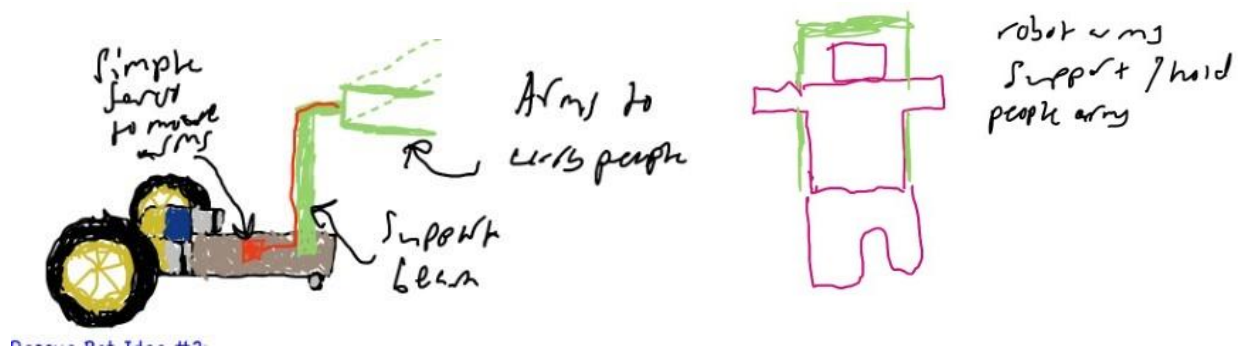 Simple
servo
to move
arms
Arms to
carry people
Support
beam
robot arms
support / hold
people arms
Rescue Bot Idea #2: